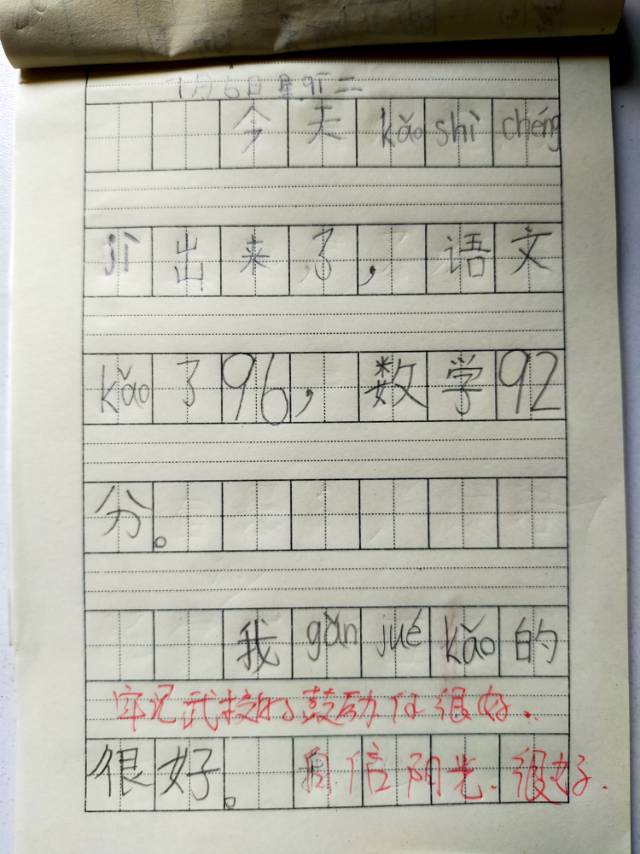 1月6日星期二
今天kǎo shì chéng
jì出来了，语文
kǎo了96，数学92
分。
我gǎn jué kǎo的
牢记武校的鼓励你很好.
很好。自信阳光.很好.